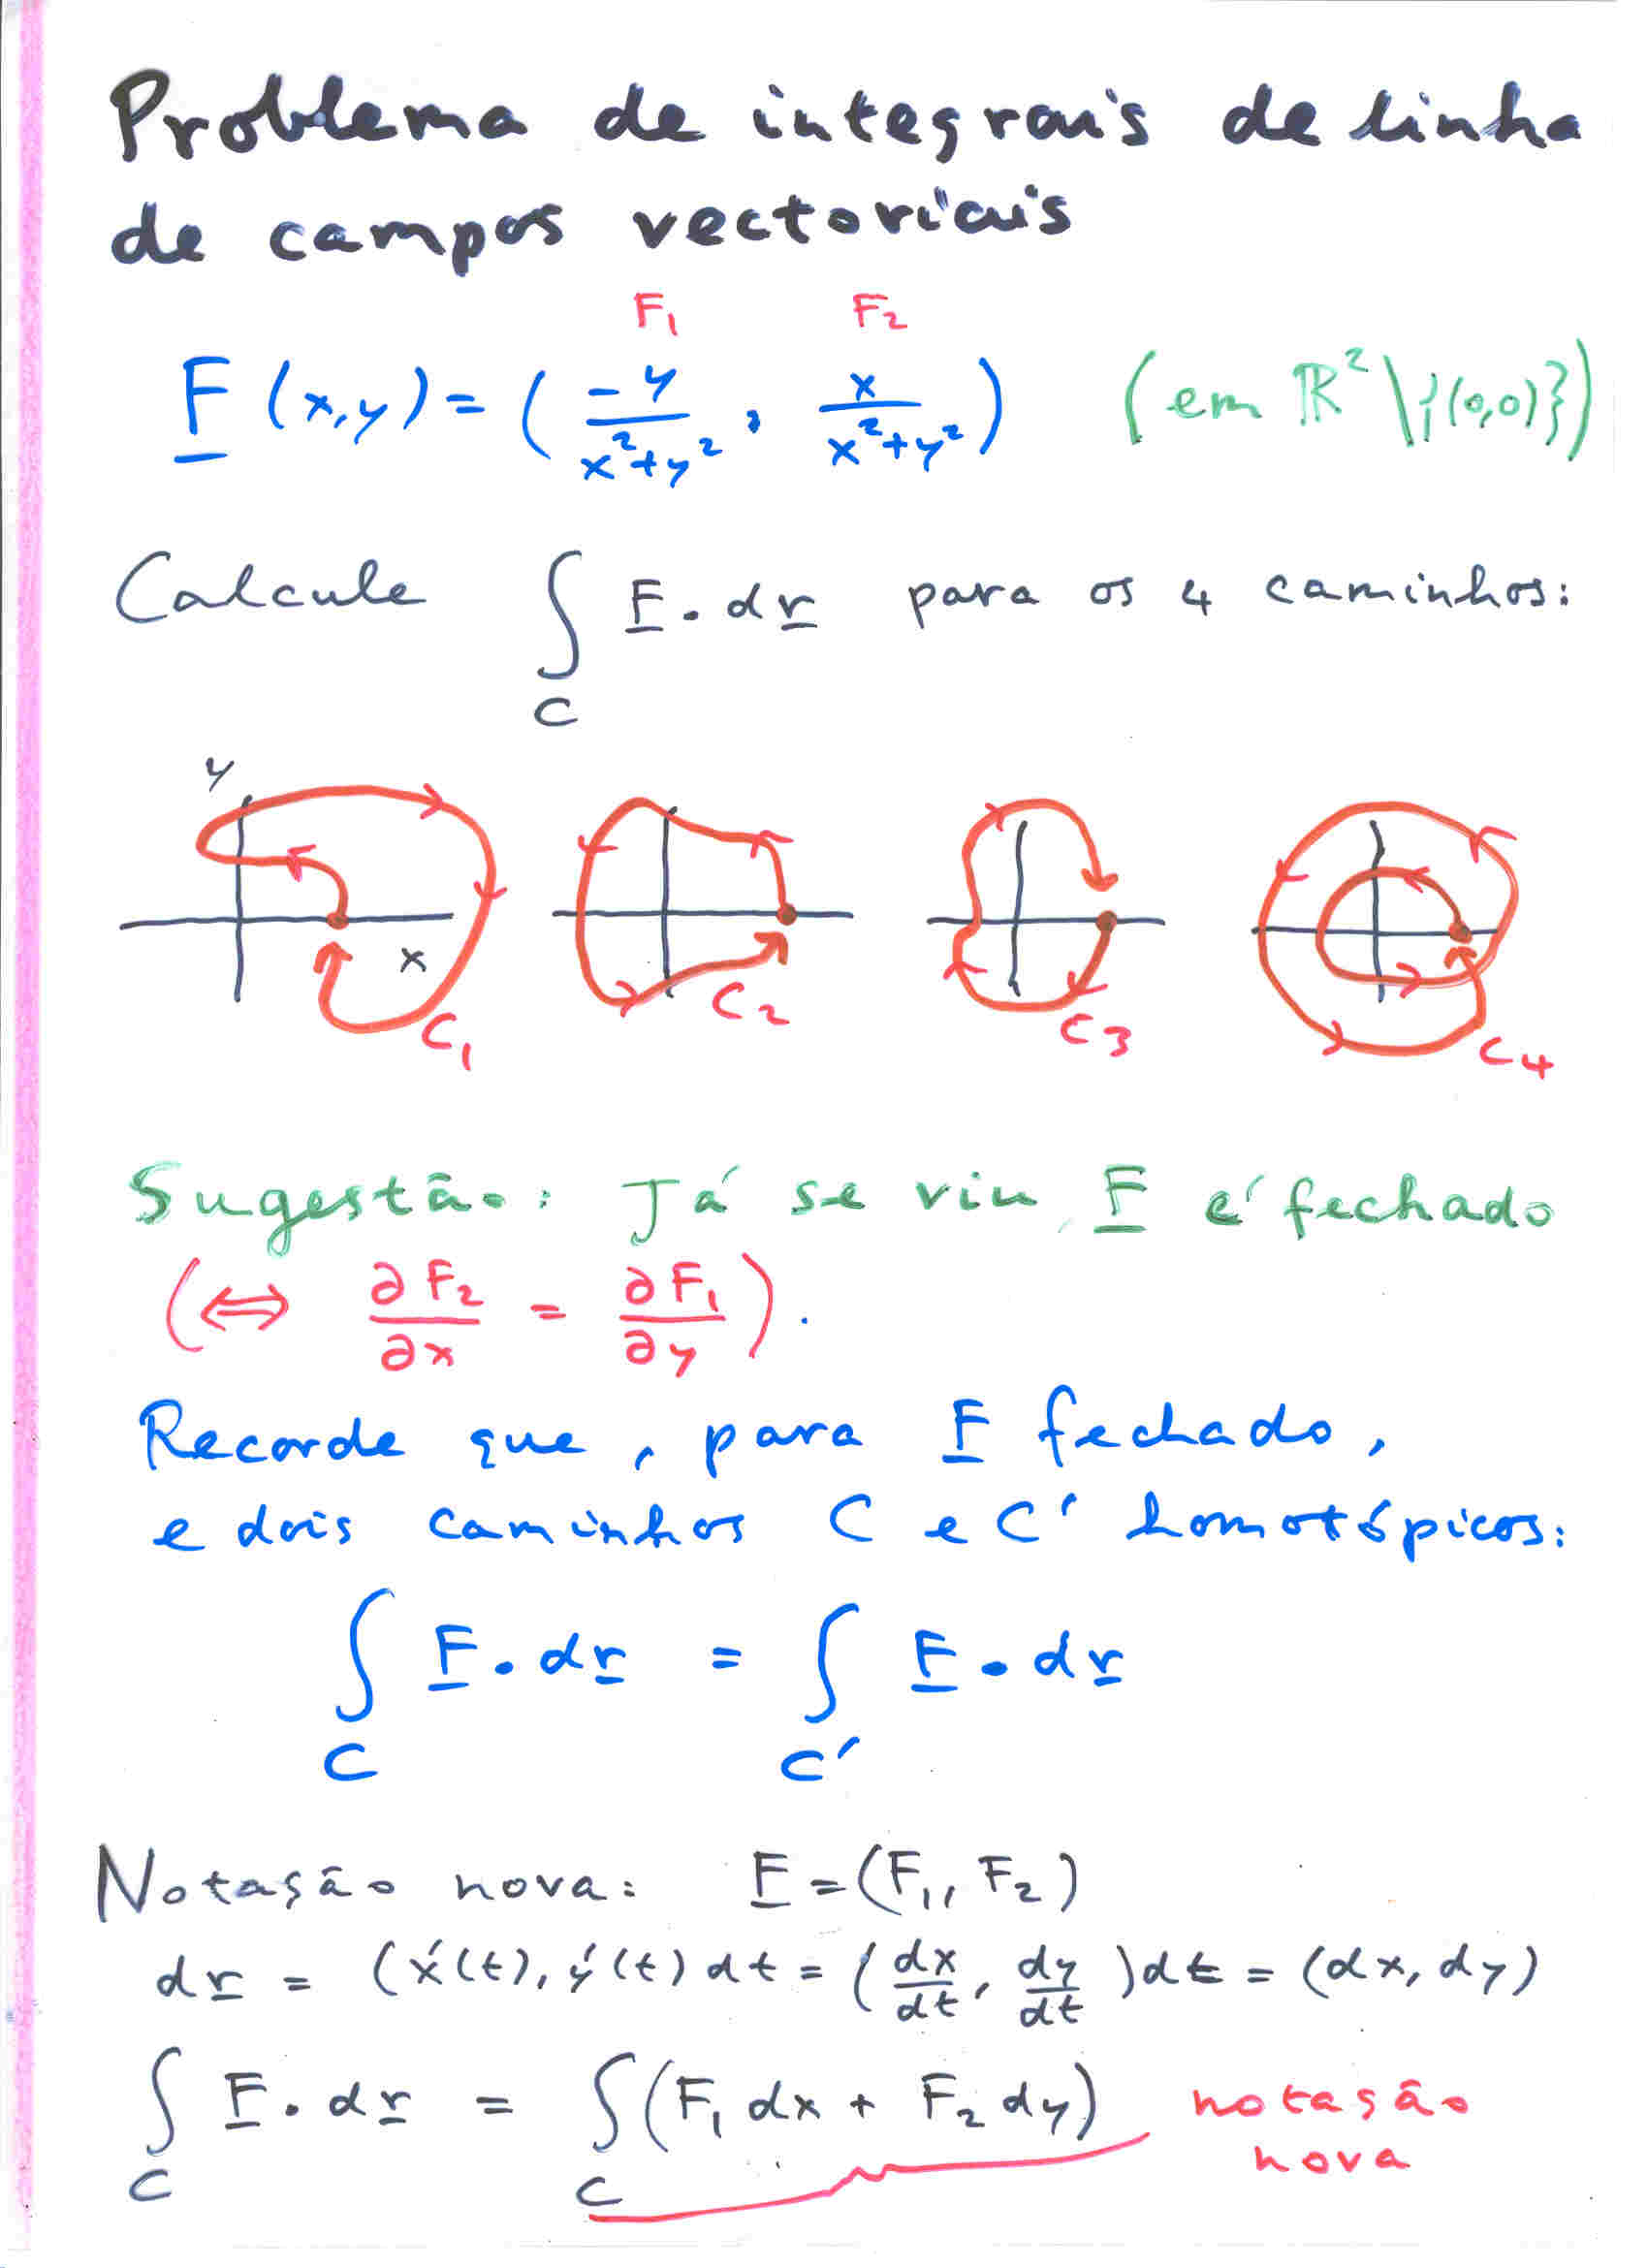 Problema de integrais de linha
de campos vectoriais
F₁ F₂
F (x,y) = ( -y/(x²+y²) , x/(x²+y²) ) (em ℝ² \ {(0,0)})
Calcule ∫_C F . dr para os 4 caminhos:
y
x
C₁ C₂ C₃ C₄
Sugestão: Já se viu, F é fechado
(⇔ ∂F₂/∂x = ∂F₁/∂y).
Recorde que, para F fechado,
e dois caminhos C e C' homotópicos:
∫_C F . dr = ∫_C' F . dr
Notação nova: F = (F₁, F₂)
dr = (x'(t), y'(t) dt = (dx/dt, dy/dt) dt = (dx, dy)
∫_C F . dr = ∫_C (F₁ dx + F₂ dy) notação
nova